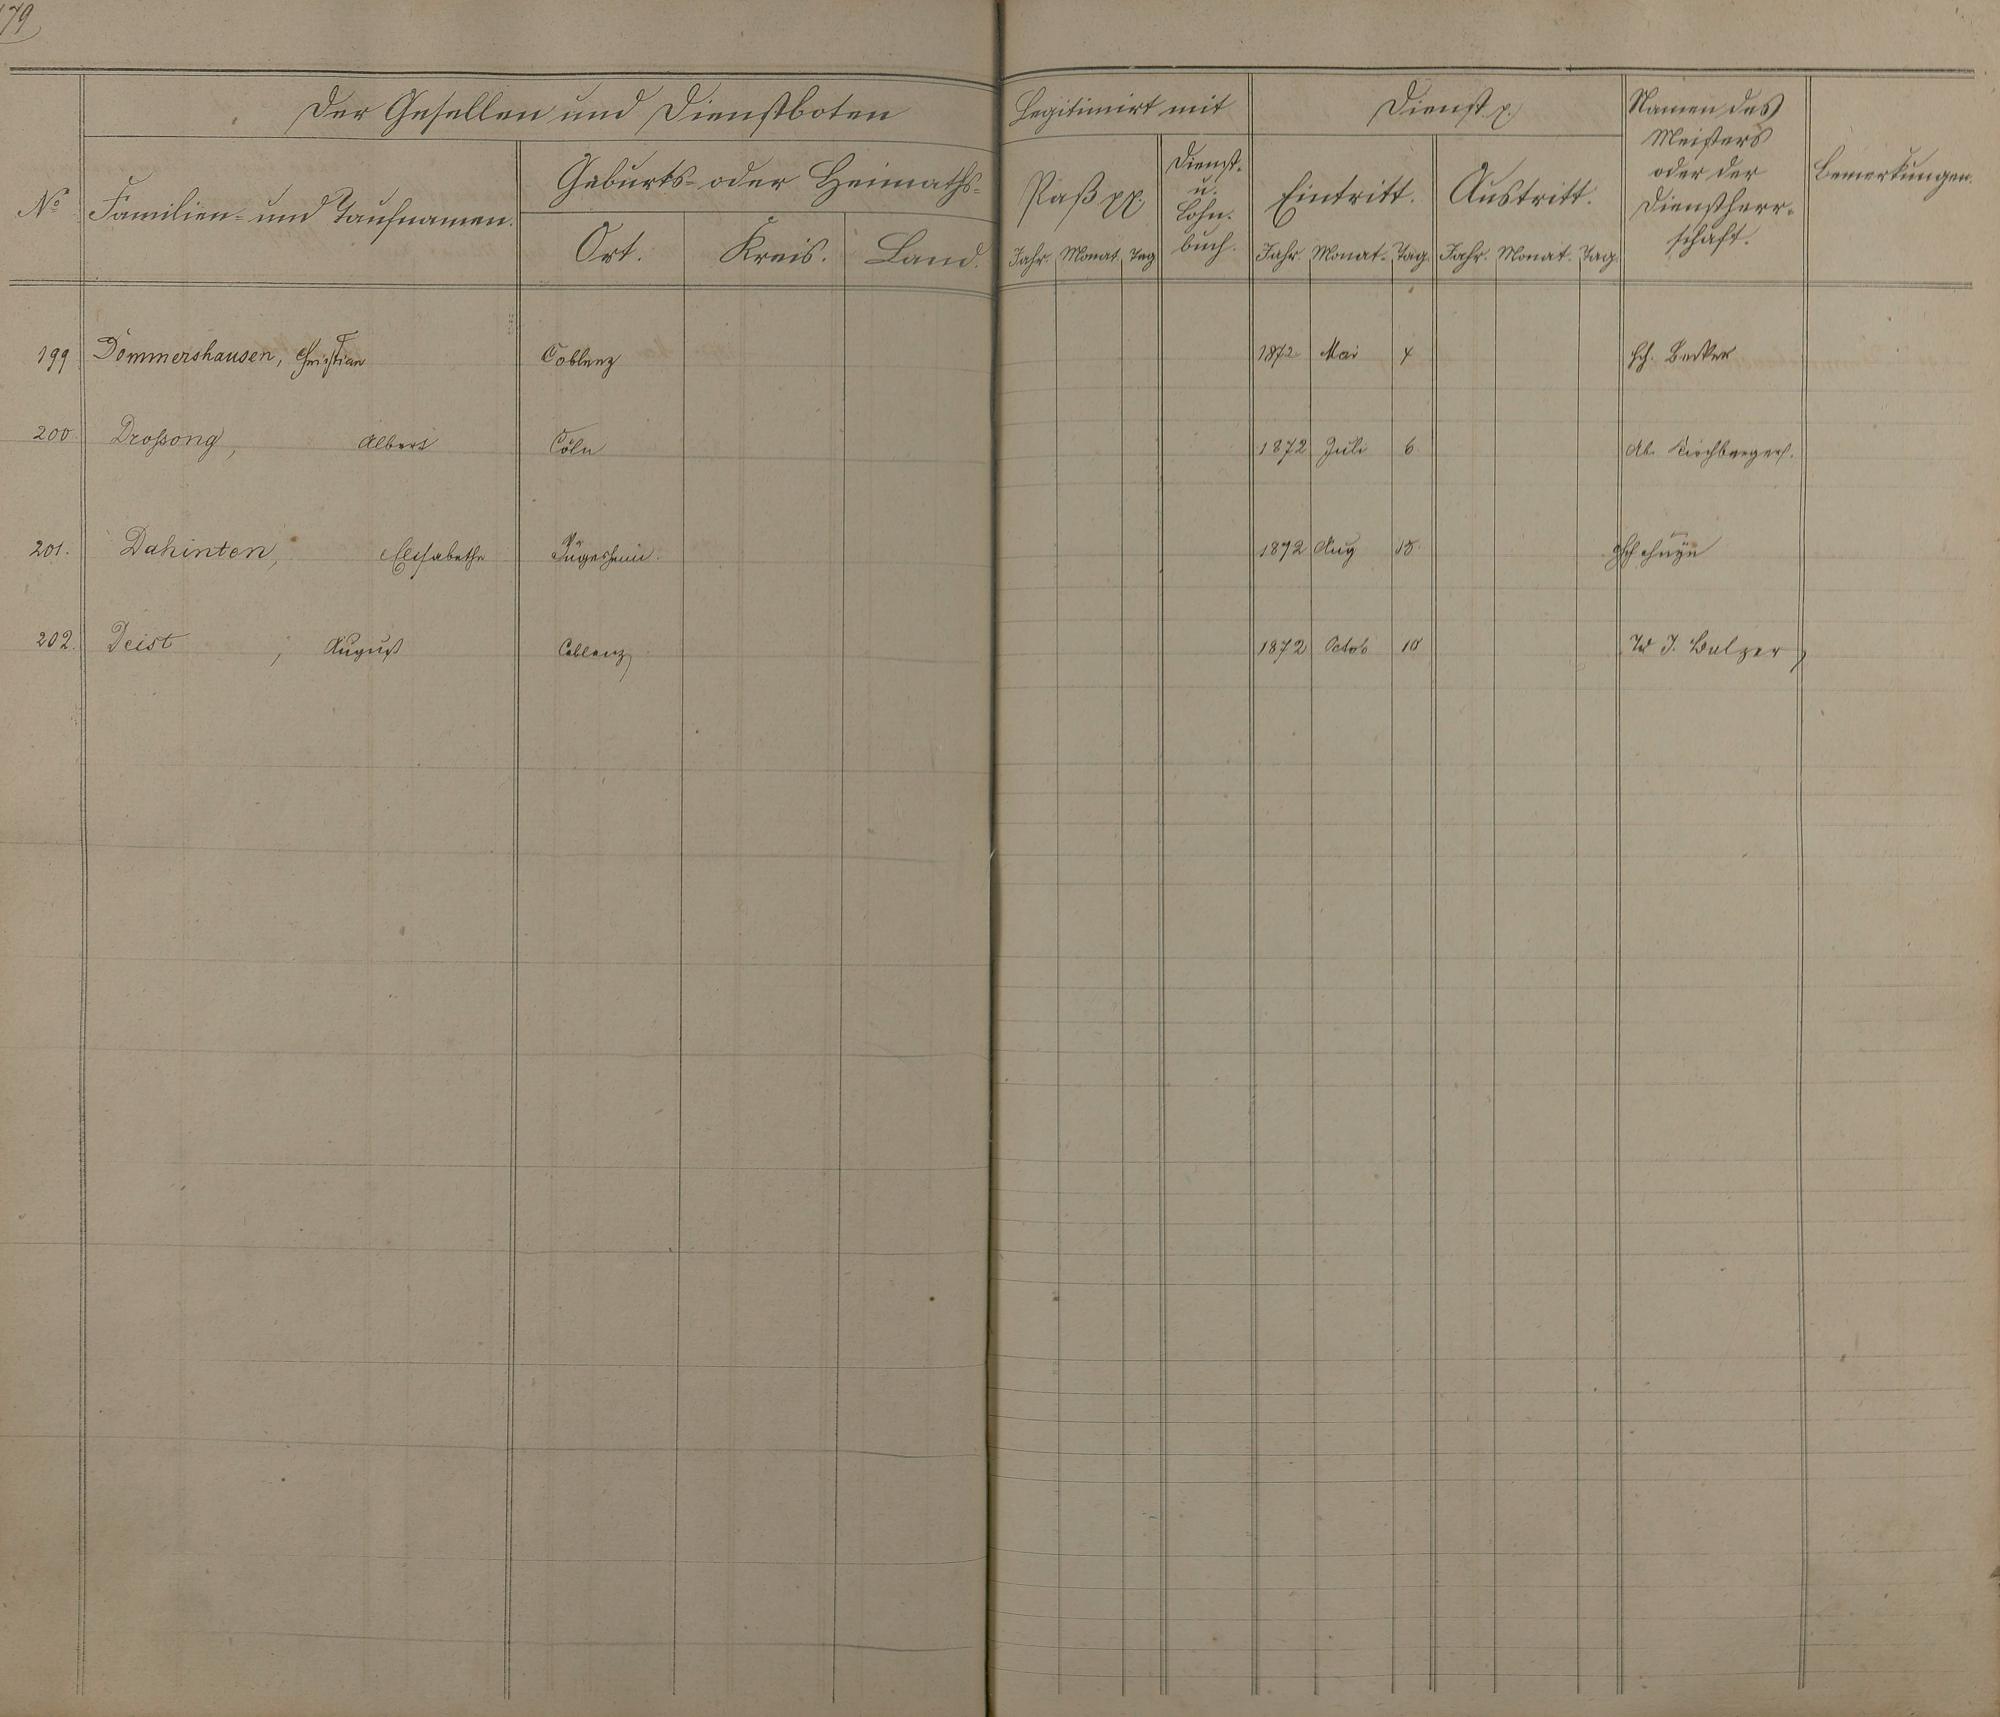 179
Der Gesellen und Dienstboten
Legitimirt mit
Dienst p.
Namen des
Meisters
oder der
Dienstherr-
schaft.
Bemerkungen.
No
Familien- und Taufnamen.
Geburts- oder Heimaths-
Ort. Kreis. Land.
Paß pp.
Dienst-
u.
Lohn-
buch.
Eintritt.
Austritt.
Jahr. Monat. Tag
Jahr. Monat. Tag.
Jahr. Monat. Tag.
199 Dommershausen, Christian Coblenz 1872 Mai 4 Hch. Becker
200 Droßong, Albert Cöln 1872 Juli 6 Kirchberger.
201. Dahinten, Elisabethe 1872 Aug 15.
202. Deist, August Coblenz 1872 Octob 10 J. Balzer